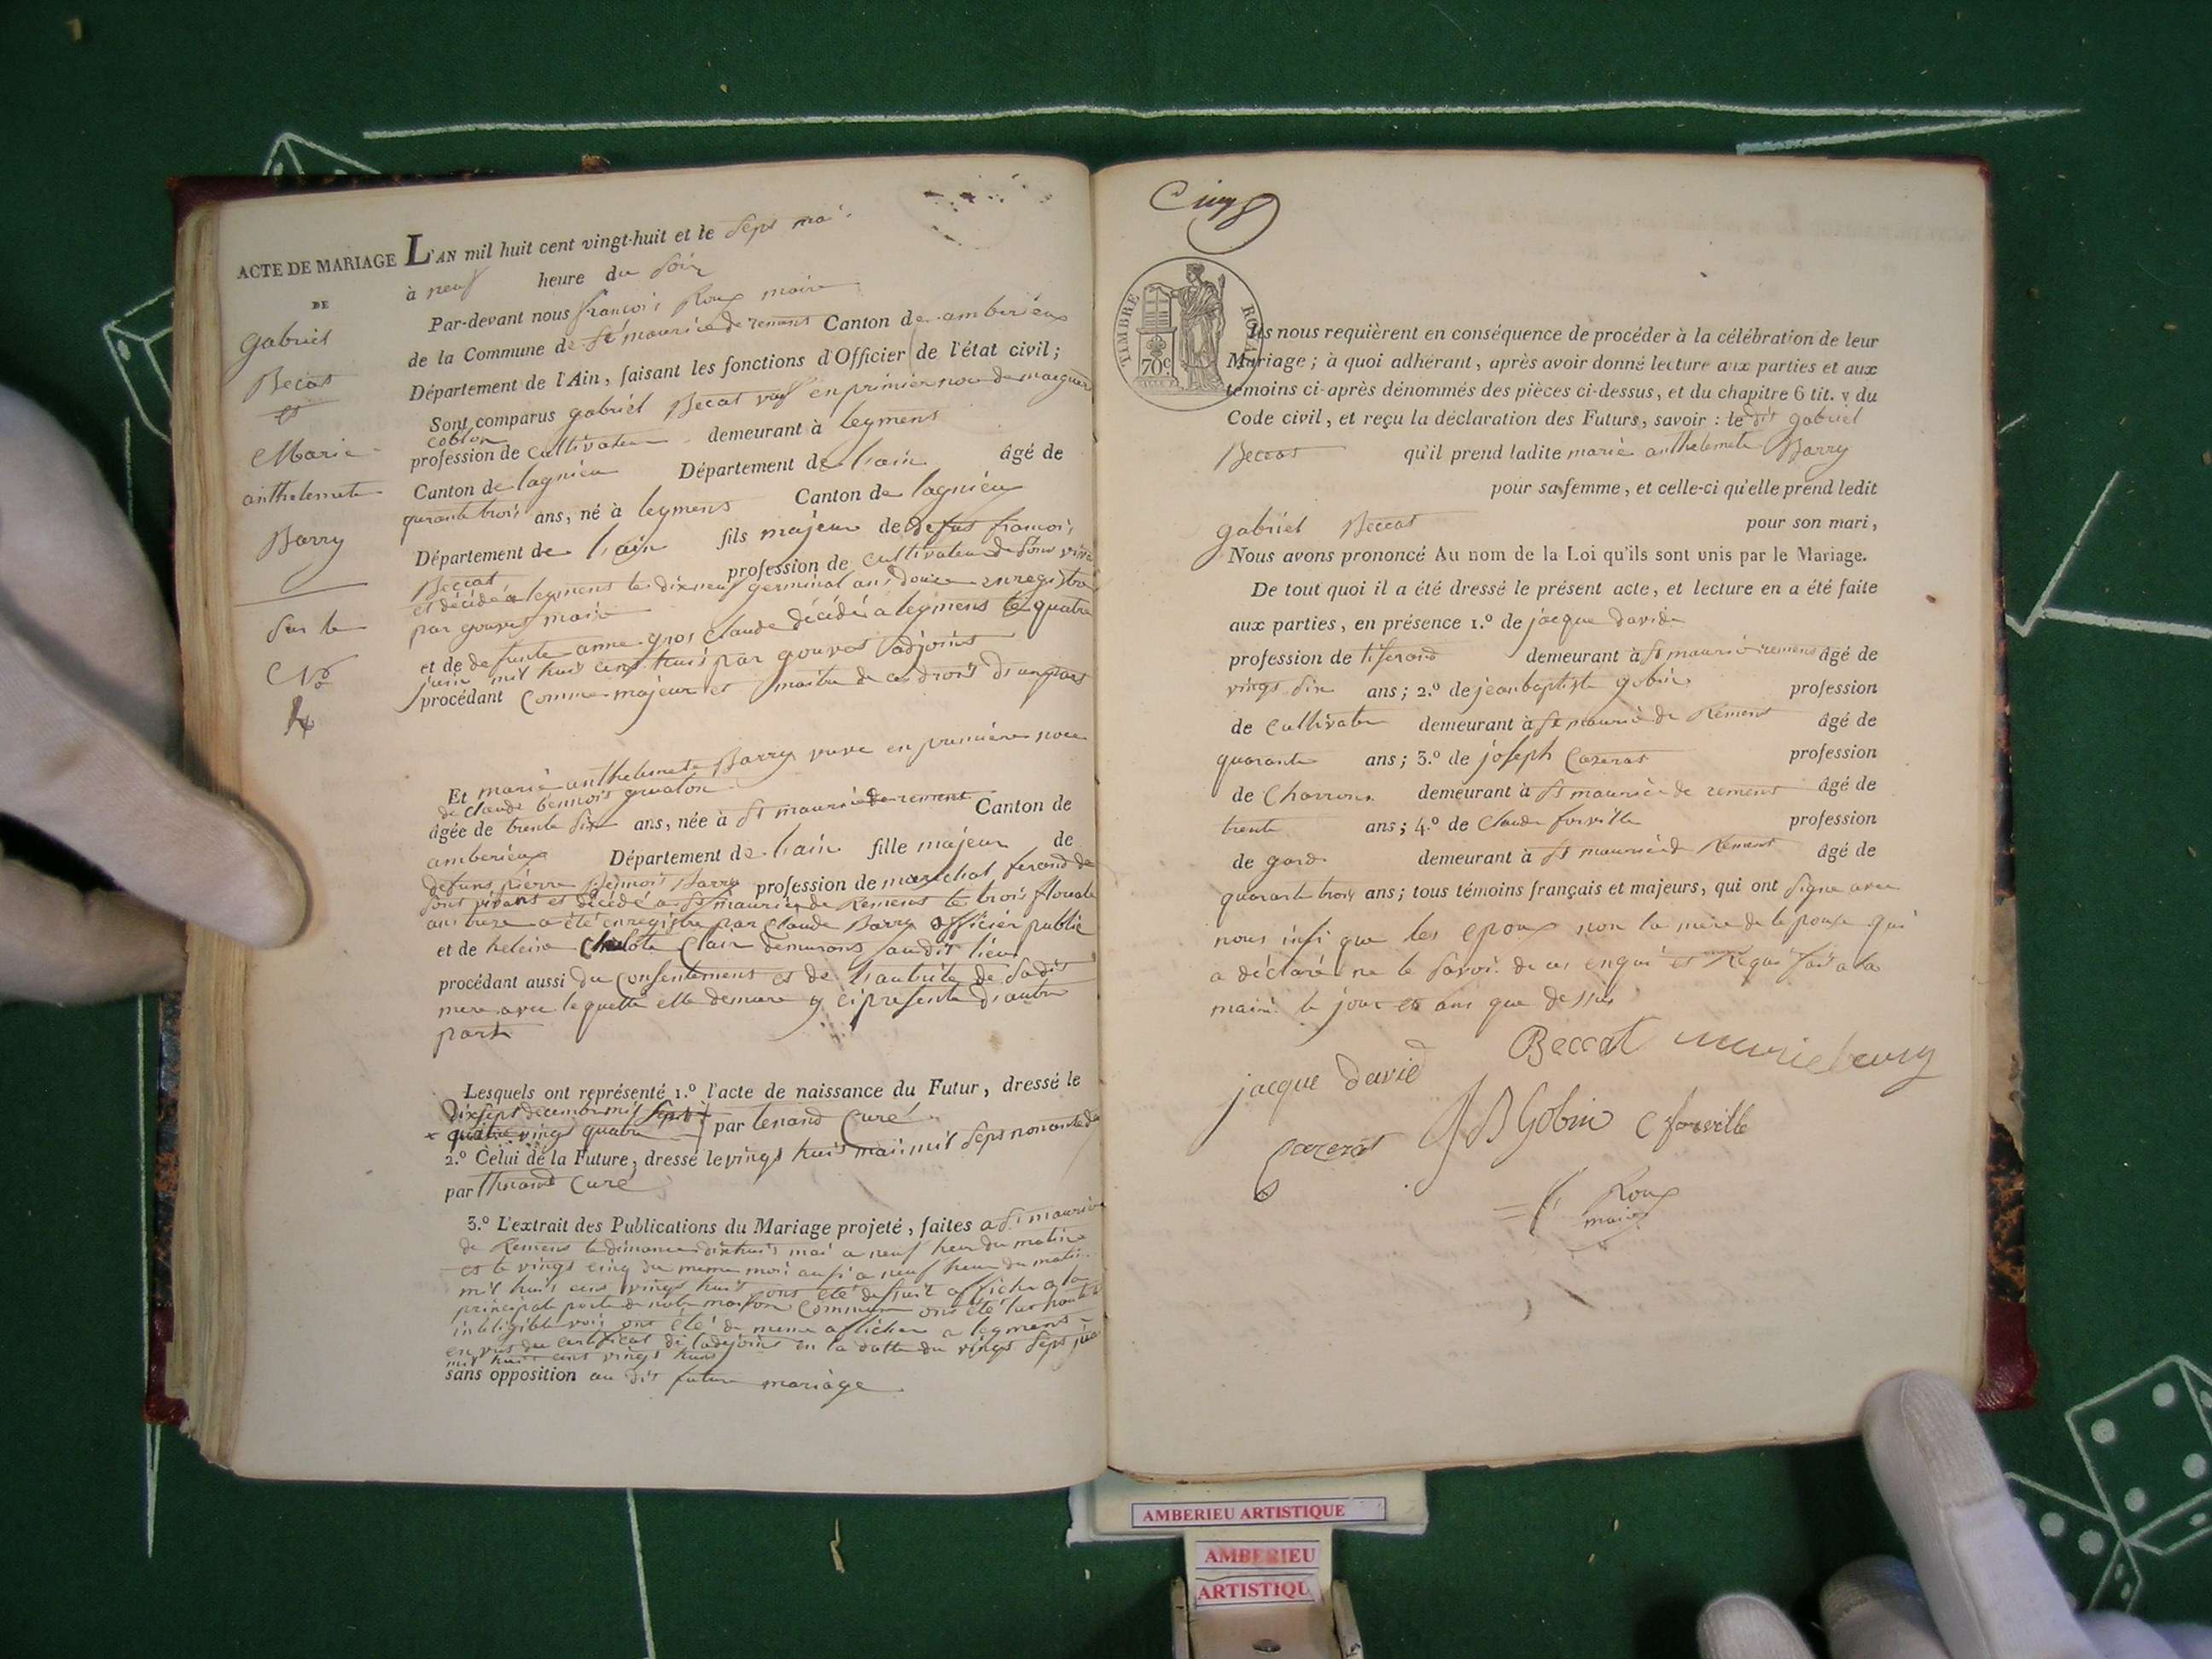 ACTE DE MARIAGE
DE
gabriel
Becat
et
Marie
anthelemete
Barry
Sur le
No
4
L'AN mil huit cent vingt-huit et le Sept mai
à neuf heure du Soir
Par-devant nous francois Roux maire
de la Commune de St maurice de remens Canton de amberieux
Département de l'Ain, faisant les fonctions d'Officier de l'état civil;
Sont comparus gabriel Becat veuf en primier noce de
profession de cultivateur demeurant à leymens
Canton de lagnieu Département de lain âgé de
quarante trois ans, né à leymens Canton de lagnieu
Département de lain fils majeur de defunt francois
Beccat profession de cultivateur de Son vivant
et décédé a leymens le dixneuf germinal ans douze enregistré
par gouvos maire
et de defunte anne gros Claude décédé a leymens le quatre
juin mil huit cent huit par gouvos adjoint
procédant Comme majeur et maitre de ces droits d'une part
Et marie anthelemete Barry veuve en première noce
de claude bennoit
âgée de trente Six ans, née à St maurice de remens Canton de
amberieux Département de lain fille majeur de
defunt pierre Bennoit Barry profession de marechal ferand de
Sont vivant et décédé a St maurice de Remens le trois floreale
ans treze a été enregistre par Claude Barry officier public
et de Clair demurant audit lieu
procédant aussi du Consentement et de l'autorité de Sadit
mere avec lequelle elle demure y ci presente d'autre
part
Lesquels ont représenté 1.º l'acte de naissance du Futur, dressé le
dixsept decembre mil Sept
quatre vingt quatre par tenand Curé
2.º Celui de la Future, dressé le vingt huit mai mil Sept nonante
par thenand Curé
3.º L'extrait des Publications du Mariage projeté, faites a St maurice
de Remens le dimance dixhuit mai a neuf heur du matin
et le vingt cinq du meme moi ausi a neuf heur du matin
mil huit cent vingt huit ont été de suit affiche a la
principale porte de notre maison Commune ont été lut haute
inteligible voi ont été de meme afficher a leymens
en vut du certificat de ladjoint en la datte du vingt Sept
mil huit cent vingt huit
sans opposition au dit future mariage
Cinq
TIMBRE ROYAL
70c.
Ils nous requièrent en conséquence de procéder à la célébration de leur
Mariage; à quoi adhérant, après avoir donné lecture aux parties et aux
témoins ci-après dénommés des pièces ci-dessus, et du chapitre 6 tit. v du
Code civil, et reçu la déclaration des Futurs, savoir: le dit gabriel
Beccat qu'il prend ladite marie anthelemete Barry
pour sa femme, et celle-ci qu'elle prend ledit
gabriel Beccat pour son mari,
Nous avons prononcé Au nom de la Loi qu'ils sont unis par le Mariage.
De tout quoi il a été dressé le présent acte, et lecture en a été faite
aux parties, en présence 1.º de jacque david
profession de tiserand demeurant à St maurice remens âgé de
vingt Six ans; 2.º de jean baptiste gobin profession
de Cultivater demeurant à St maurice de Remens âgé de
quarante ans; 3.º de joseph Cozerat profession
de Charrons demeurant à St maurice de remens âgé de
trente ans; 4.º de Claude forville profession
de gard demeurant à St maurice d Remens âgé de
quarante trois ans; tous témoins français et majeurs, qui ont Signe avec
nous insi que les epoux non la mere de le pouse qui
a déclaré ne le Savoi de ces enqui et Requi fait a la
mairi le jour et ans que dessus
Beccat marie barry
jacque david
J B Gobin C forville
cozerat
Roux
maire
AMBERIEU ARTISTIQUE
AMBERIEU
ARTISTIQU